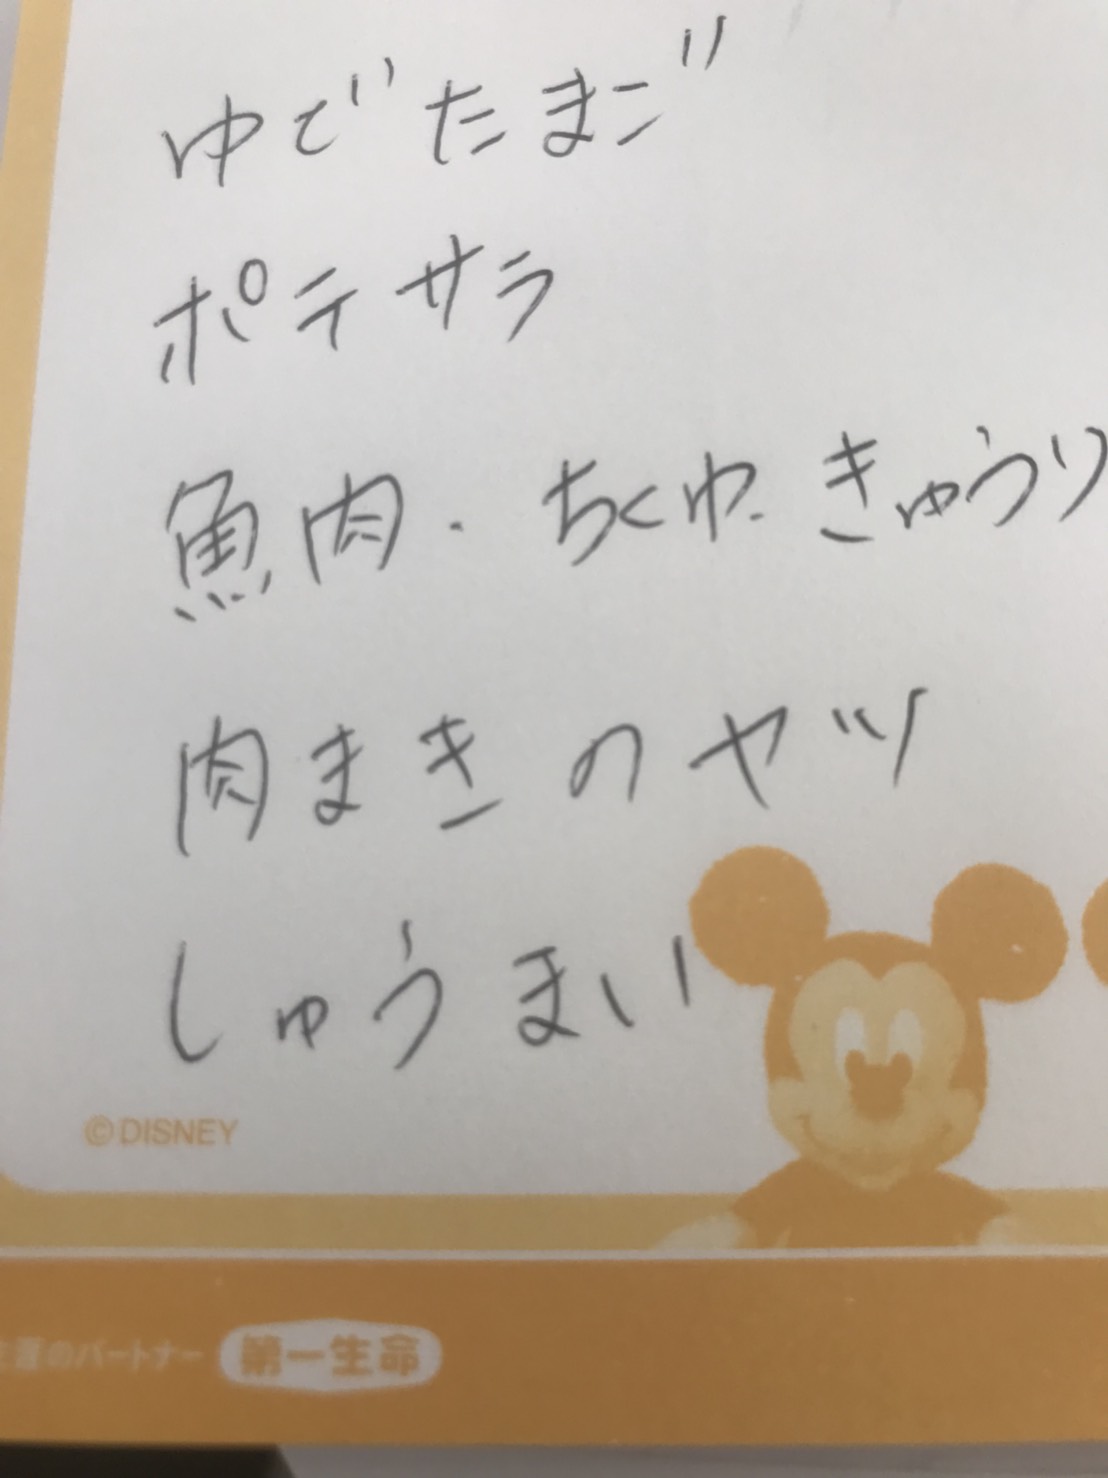 ゆでたまご
ポテサラ
魚肉・ちくわ きゅうり
肉まきのヤツ
しゅうまい
©DISNEY
生涯のパートナー 第一生命